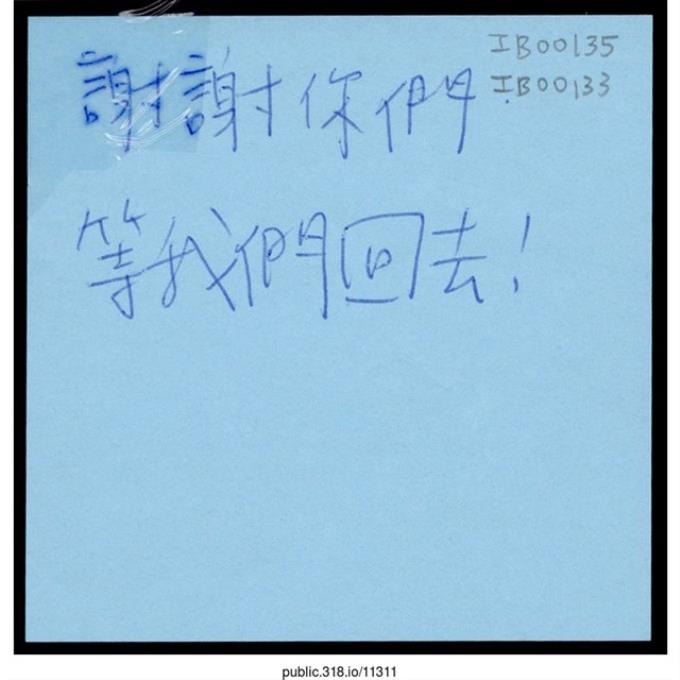 IB00135
IB00133
謝謝你們
等我們回去!
public.318.io/11311